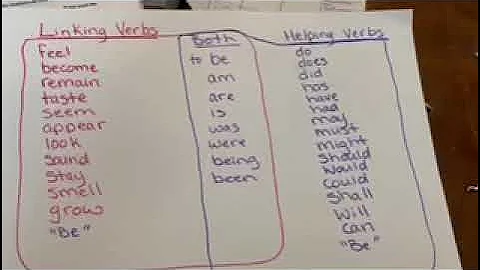 Linking Verbs
feel
become
remain
taste
seem
appear
look
sound
stay
smell
grow
"Be"
Both
to be
am
are
is
was
were
being
been
Helping Verbs
do
does
did
has
have
had
may
must
might
should
would
could
shall
will
can
"Be"